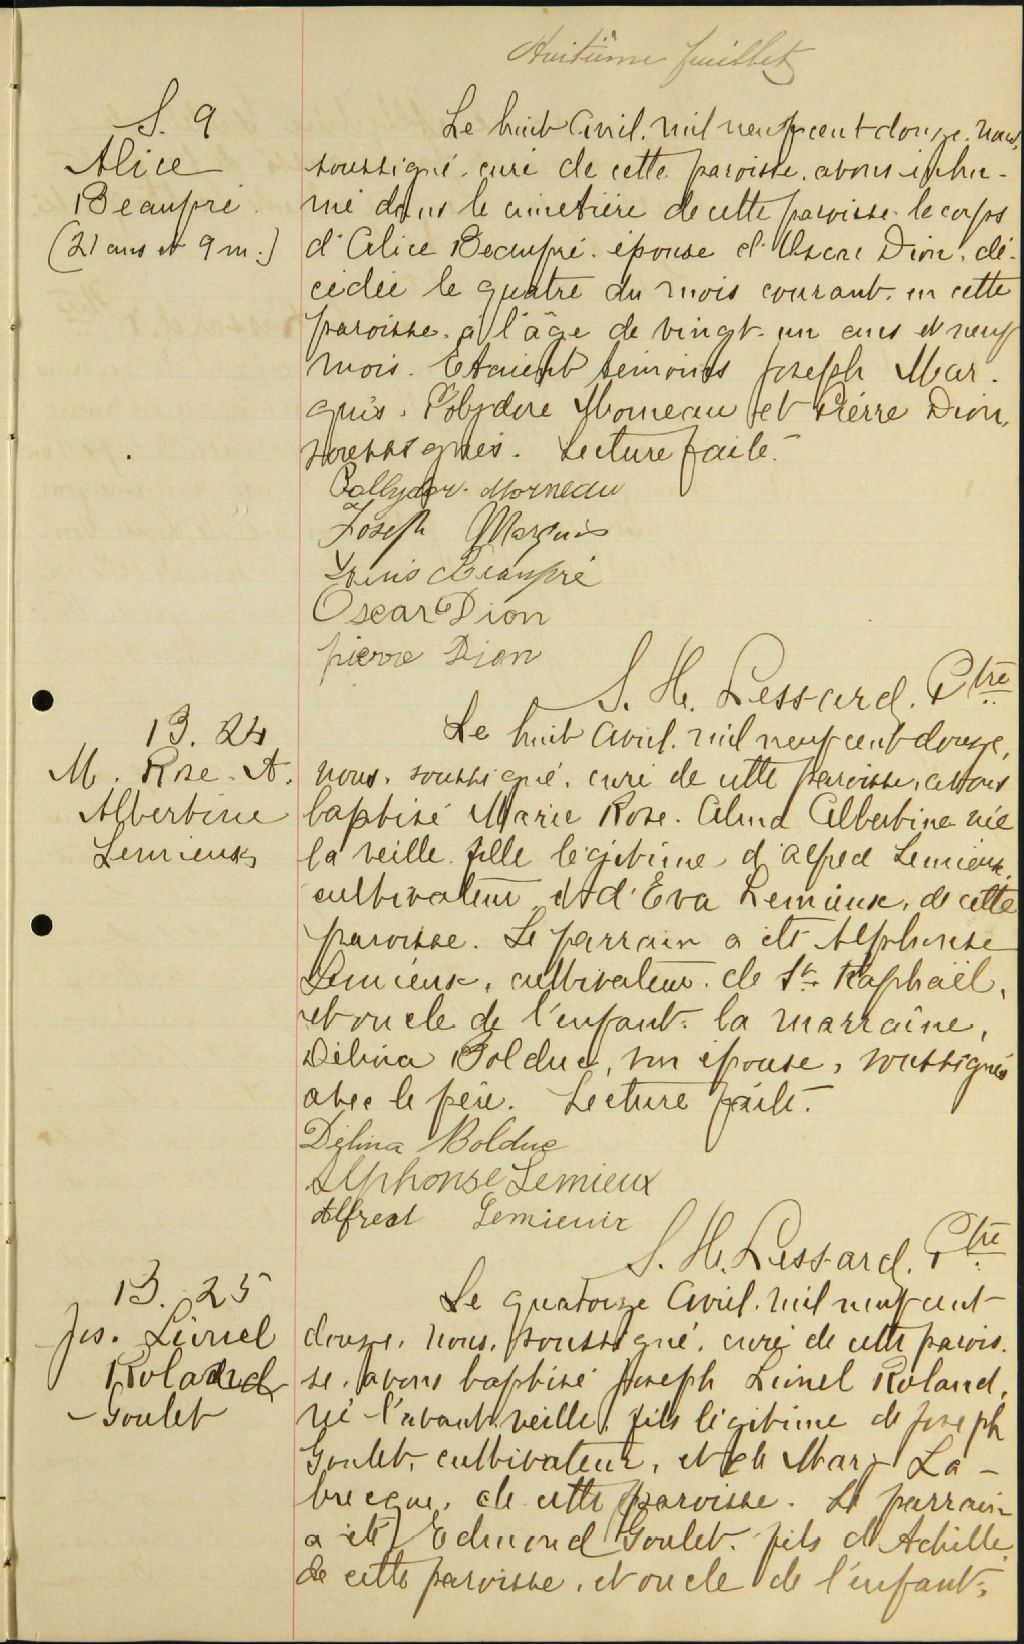 Huitième feuillet
S. 9
Alice
Beaupré
(21 ans et 9 m.)
Le huit Avril, mil neuf cent douze, nous,
soussigné, curé de cette paroisse, avons inhu-
mé dans le cimetière de cette paroisse le corps
d'Alice Beaupré, épouse d'Oscar Dion, dé-
cédée le quatre du mois courant, en cette
paroisse, à l'âge de vingt-un ans et neuf
mois. Etaient témoins Joseph Mar-
quis, Polydore Morneau et Pierre Dion,
soussignés. Lecture faite.
Pollydor Morneau
Joseph Marquis
Louis Beaupré
Oscar Dion
pierre Dion
S. H. Lessard, Ptre
B. 24
M. Rose-A.
Albertine
Lemieux
Le huit Avril, mil neuf cent douze,
nous, soussigné, curé de cette paroisse, avons
baptisé Marie Rose-Alma Albertine née
la veille, fille légitime d'Alfred Lemieux,
cultivateur et d'Eva Lemieux, de cette
paroisse. Le parrain a été Alphonse
Lemieux, cultivateur, de St Raphaël,
et oncle de l'enfant; la marraine,
Délina Bolduc, son épouse, soussignés
avec le père. Lecture faite.
Délina Bolduc
Alphonse Lemieux
Alfred Lemieux
S. H. Lessard, Ptre
B. 25
Jos. Lionel
Roland
Goulet
Le quatorze Avril, mil neuf cent
douze, nous, soussigné, curé de cette parois-
se, avons baptisé Joseph Lionel Roland,
né l'avant veille, fils légitime de Joseph
Goulet, cultivateur, et de Mary La-
brecque, de cette paroisse. Le parrain
a été Edmond Goulet, fils d'Achille
de cette paroisse, et oncle de l'enfant;